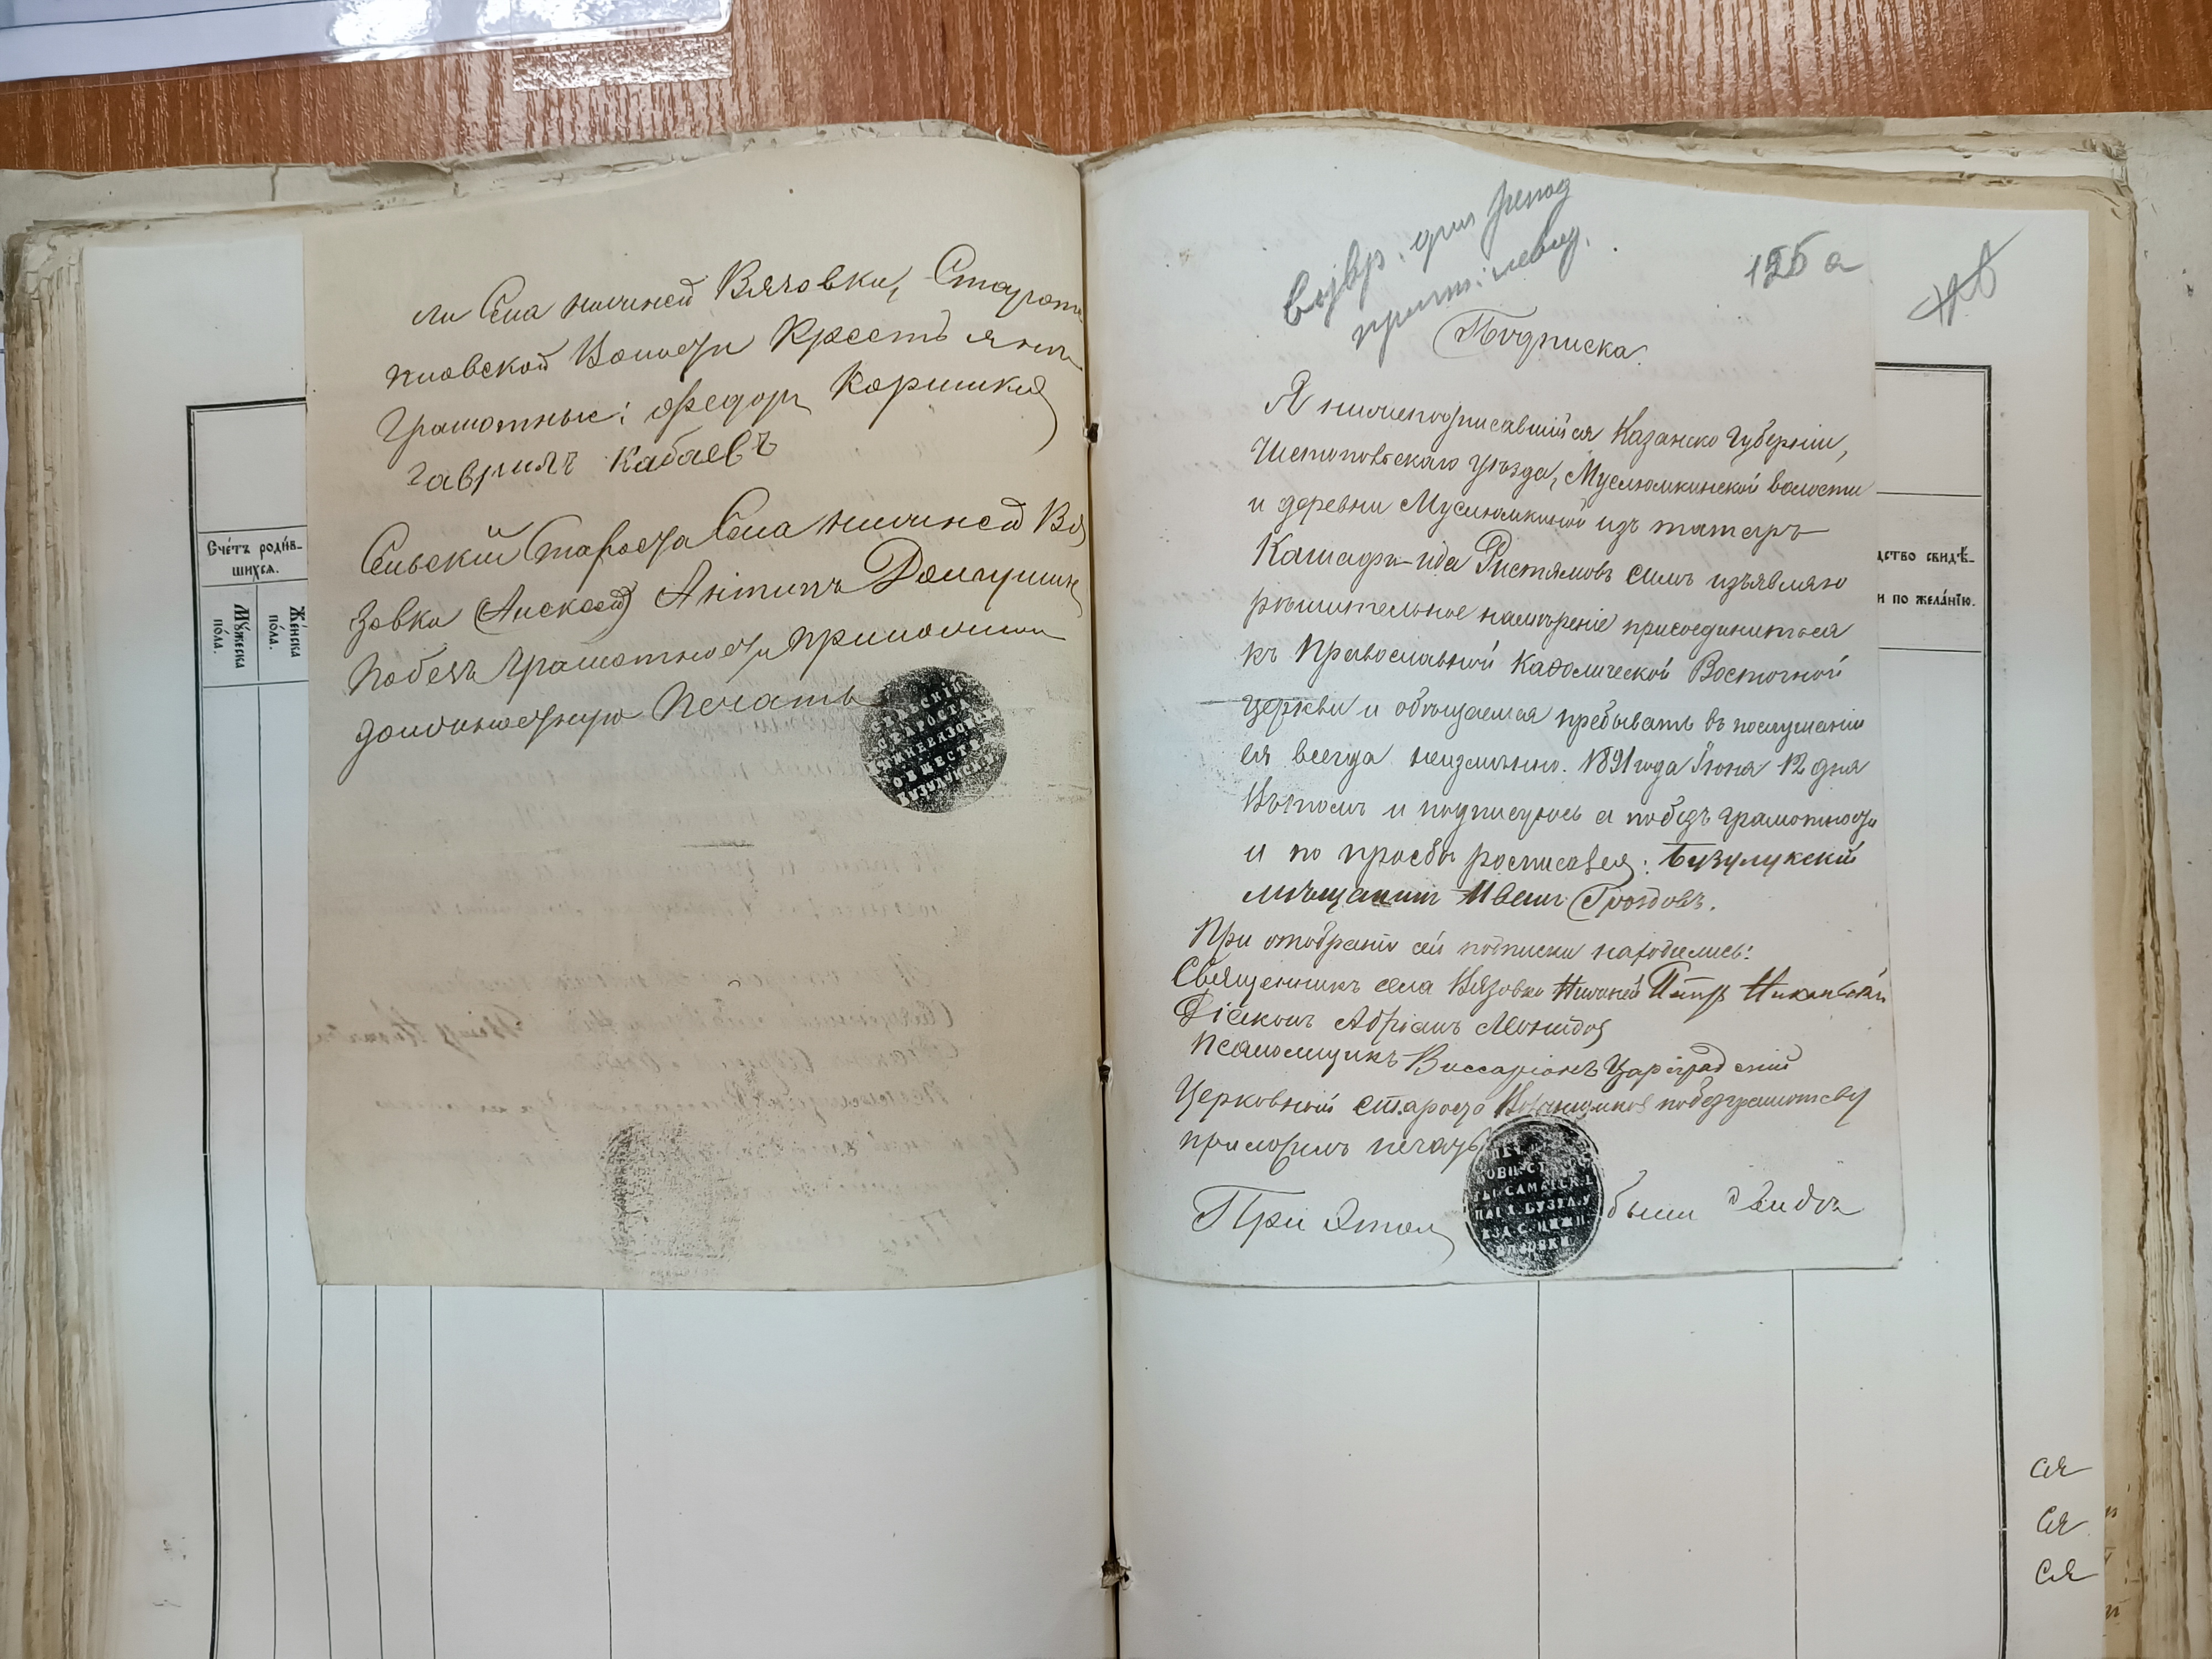 ли Села нижней Вязовки, Старот
пловской Волости Крестьяни
Грамотные: Федоръ Коршиков
Гаврилъ Кабаевъ
Сельский Староста Села нижней Вя
зовки Антипъ
Побезъ грамотности приложил
должностную Печать
СЕЛЬСКІЙ
СТАРОСТА
ОБЩЕСТВ
Счётъ роди́в-
шихся.
Му́жеска
по́ла.
Же́нска
по́ла.
125 а
Подписка.
Я нижеподписавшийся Казанско Губерніи,
Чистопольскаго уѣзда, Муслюмкинской волости
и деревни Муслюмкиной изъ татаръ
Ристямовъ симъ изъявляю
рѣшительное намѣреніе присоединиться
къ Православной Каѳолической Восточной
Церкви и обѣщаемся пребывать въ послушаніи
ея всегда неизмѣнно. 1891 года Іюня 12 дня
Въ томъ и подписуюсь а побезъ грамотности
и по просьбѣ росписовся: Бузулукскій
мѣщанинъ Иванъ Гроздовъ.
При отобраніи сей подписки находились:
Священникъ села Вязовки Нижней Петръ Никольскій
Діаконъ Адріанъ
Псаломщикъ Виссаріонъ Цареградскій
Церковный староста побезграмотству
приложилъ печать
При Этом были Свидѣ
САМАРСК.
БУЗУЛ. У
дство свидѣ-
и по жела́нію.
ся
ся
ся